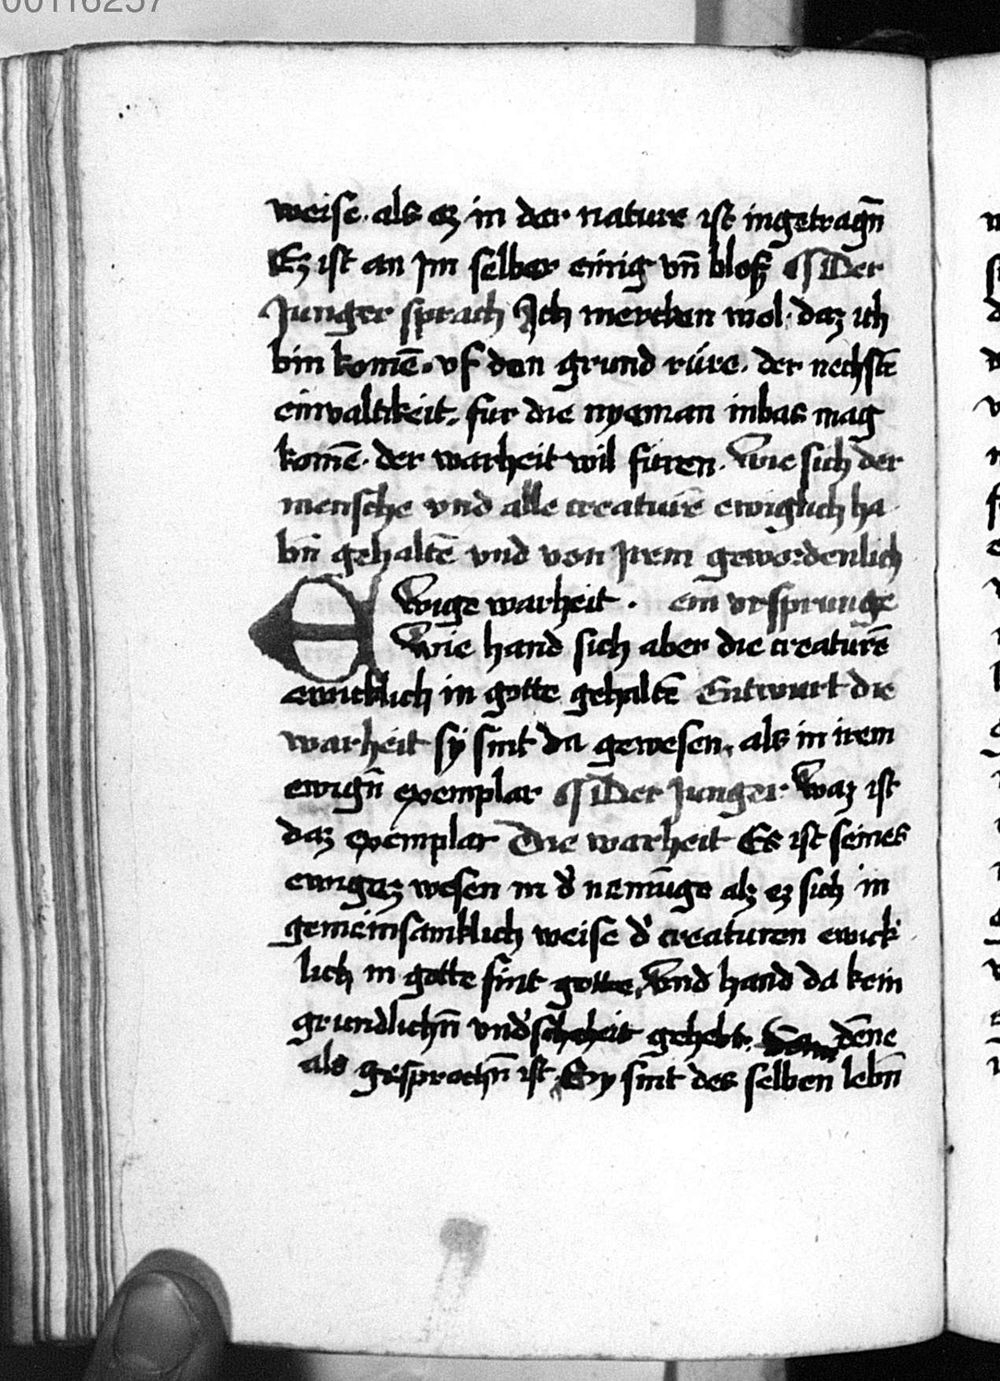 00116257
weise. als ez in der nature ist ingetragn̄
Ez ist an jm selber einig vn̄ bloß ¶ Der
Junger sprach Ich mercken wol. daz ich
bin komē. vf den grund rüre. der nechstē
einvaltikeit. fur die nyeman inbas mag
komē. der warheit wil furen. Wie sich der
mensche vnd alle creaturē ewiglich ha
bn̄ gehaltē vnd von jrem gewordenlich
EWige warheit. ein vrsprunge
wie hand sich aber die creaturē
ewicklich in gotte gehaltē Entwurt die
warheit sÿ sint da gewesen, als in irem
ewign̄ exemplar ¶ Der Junger Waz ist
daz exemplar Die warheit Es ist seines
ewigez wesen in d' nemūge alz ez sich in
gemeinsamklich weise d' creaturen ewick
lich in gotte sint gotte, Vnd hand da kein
grundlichn̄ vnd'scheheit gehebt. dēne
als gesprochn̄ ist Sy sint des selben lebn̄